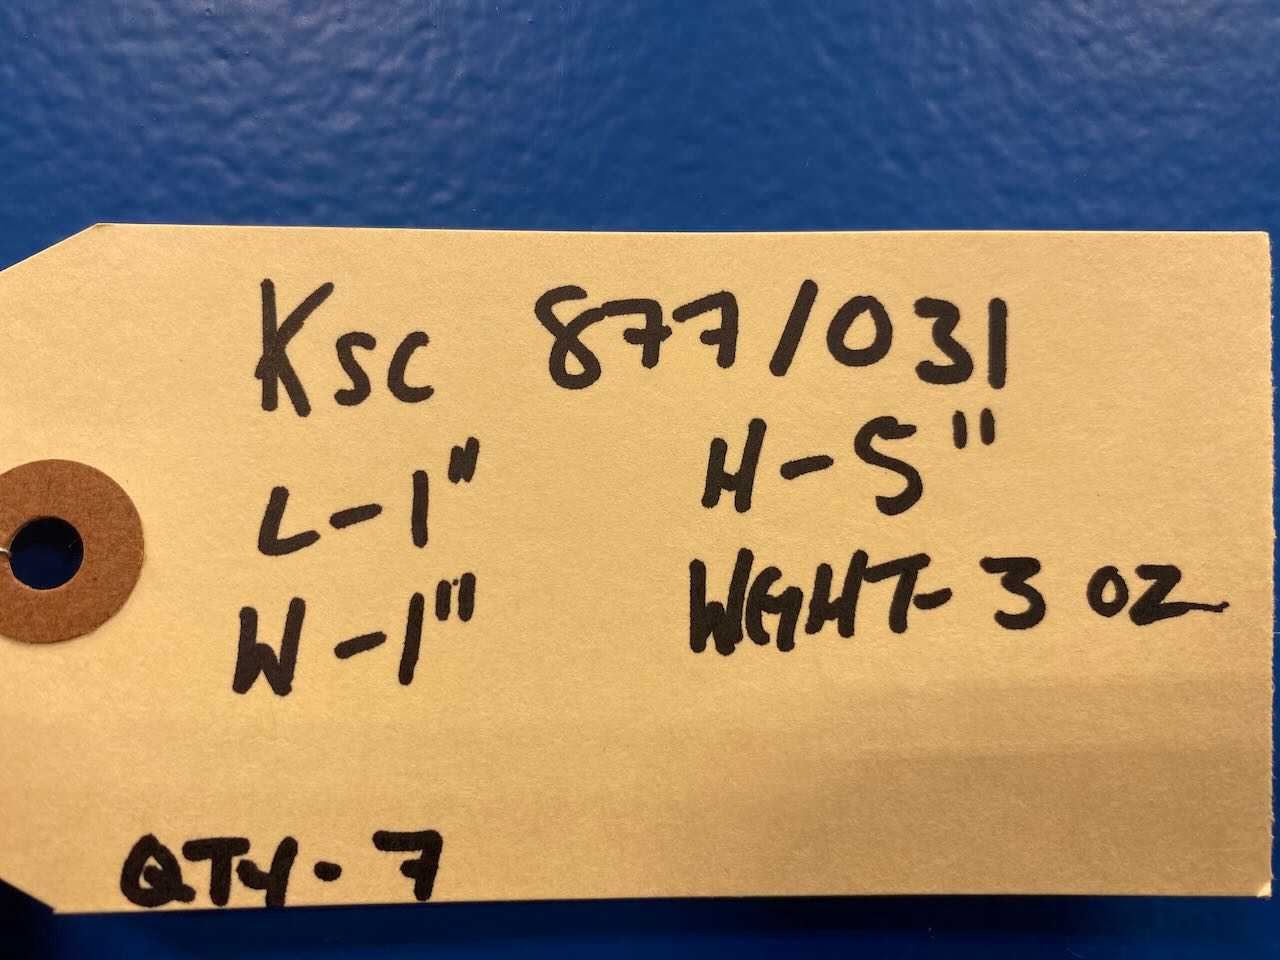 KSC 877/031
L-1" H-5"
W-1" WGHT-3 OZ
QTY-7